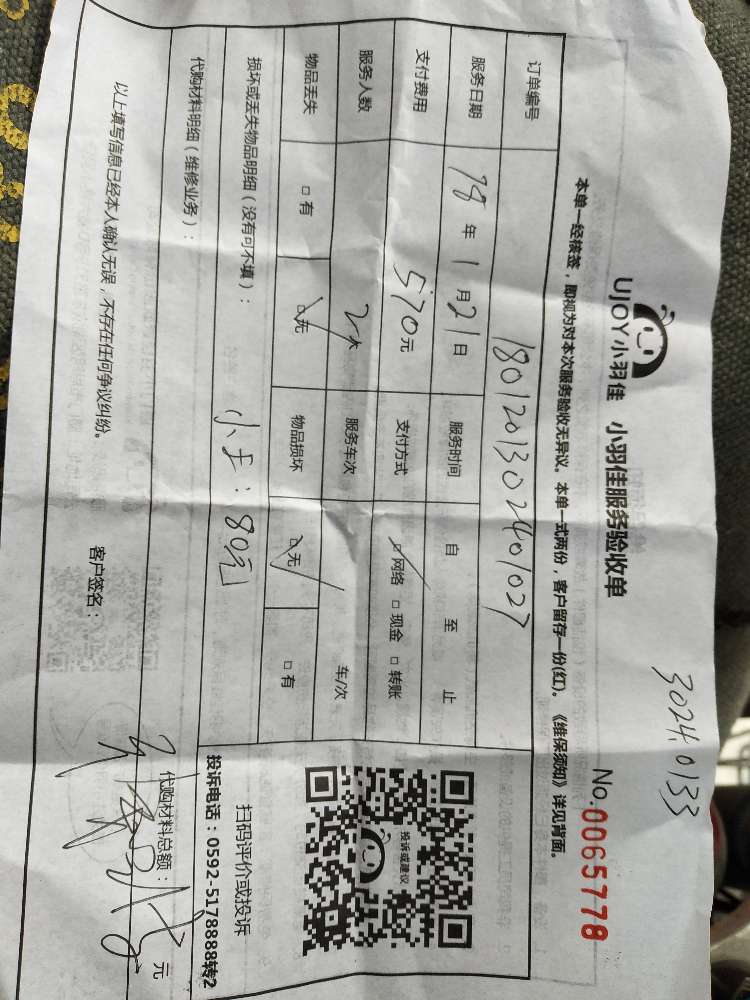 30240133
UJOY小羽佳 小羽佳服务验收单 No.0065778
本单一经核签，即视为对本次服务验收无异议。本单一式两份，客户留存一份(红)。《维保须知》详见背面。
订单编号 1801201302401027
服务日期 18年1月21日 服务时间 自 至 止
支付费用 570元 支付方式 ☑网络 □现金 □转账
服务人数 2人 服务车次 车/次
物品丢失 □有 ☑无 物品损坏 ☑无 □有
投诉或建议
扫码评价或投诉
投诉电话：0592-5178888转2
损坏或丢失物品明细（没有可不填）：
小工：80元
代购材料明细（维修业务）：
代购材料总额： 元
以上填写信息已经本人确认无误，不存在任何争议纠纷。 客户签名：